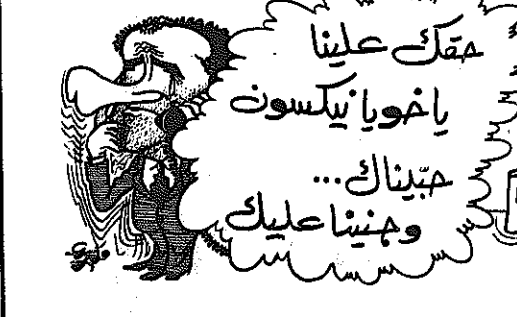 حقك علينا
ياخويا نيكسون
حبّيناك...
وجنينا عليك